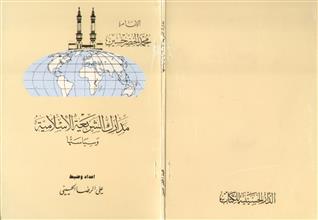 الإمام
محمد الخضر حسين
مدارك الشريعة الإسلامية
وسياستها
إعداد وضبط
علي الرضا الحسيني
الدار الحسينية للكتاب